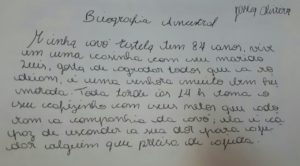 Biografia Ancestral
Minha avó tem 84 anos, vive
em uma casinha com seu marido
Luis, gosta de agradar todos que a ro
deiam, é uma senhora muito bem hu
morada. Toda tarde às 14 h toma o
seu cafezinho com seus netos que ado
ram a companhia da avó, ela é ca
paz de esconder a sua dor para aju
dar alguém que precisa de ajuda.